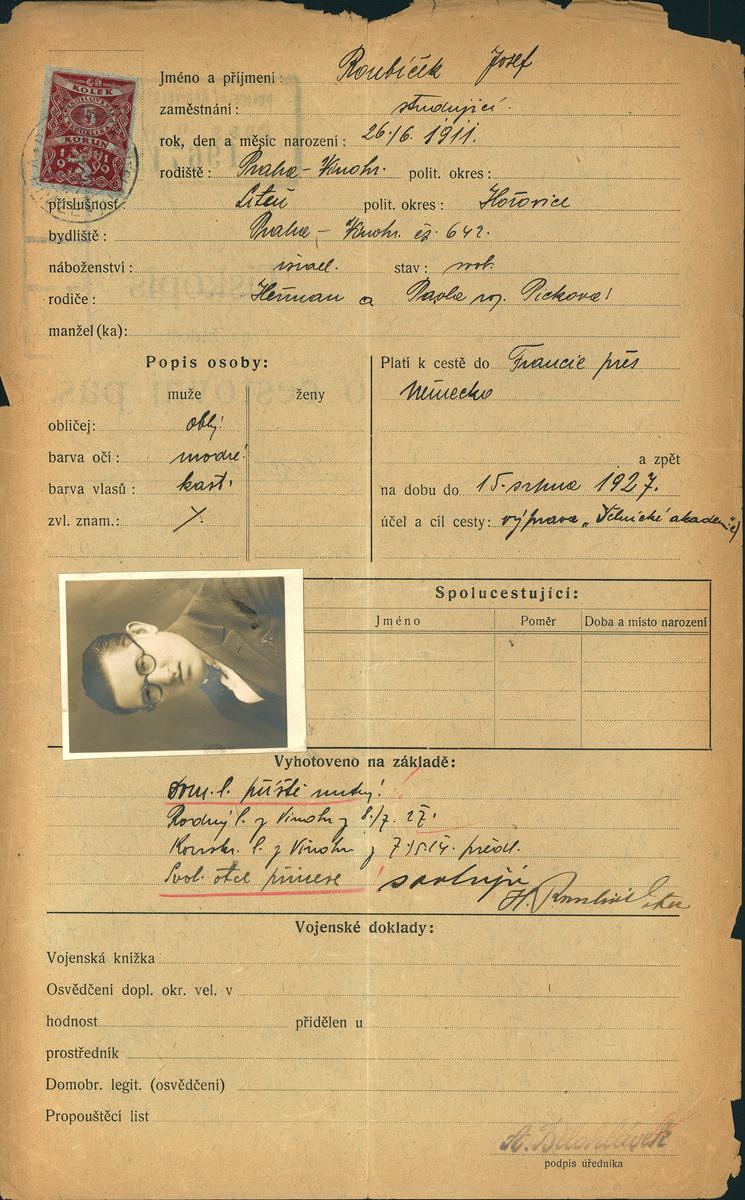 KOLEK
5
KORUN
1919
Jméno a příjmení: Roubíček Josef
zaměstnání: studující.
rok, den a měsíc narození: 26./6. 1911.
rodiště: Praha - Vinohr. polit. okres:
příslušnost: Liteň polit. okres: Hořovice
bydliště: Praha - Vinohr. čp. 642.
náboženství: israel. stav: svob.
rodiče: Heřman a Pavla roz. Picková
manžel (ka):
Popis osoby:
muže ženy
obličej: oblý
barva očí: modré
barva vlasů: kašt.
zvl. znam.:
Platí k cestě do Francie přes
Německo
a zpět
na dobu do 15. srpna 1927.
účel a cíl cesty: výprava „Dělnické akademie“
Spolucestující:
Jméno Poměr Doba a místo narození
Vyhotoveno na základě:
dom. l. příště nutný!
Rodný l. z Vinohr z 8./7. 27.
Konskr. l. z Vinohr z předl.
Svol. otce přinese svoluji
H. Roubíček otec
Vojenské doklady:
Vojenská knížka
Osvědčení dopl. okr. vel. v
hodnost přidělen u
prostředník
Domobr. legit. (osvědčení)
Propouštěcí list
A. Bělohlávek
podpis úředníka